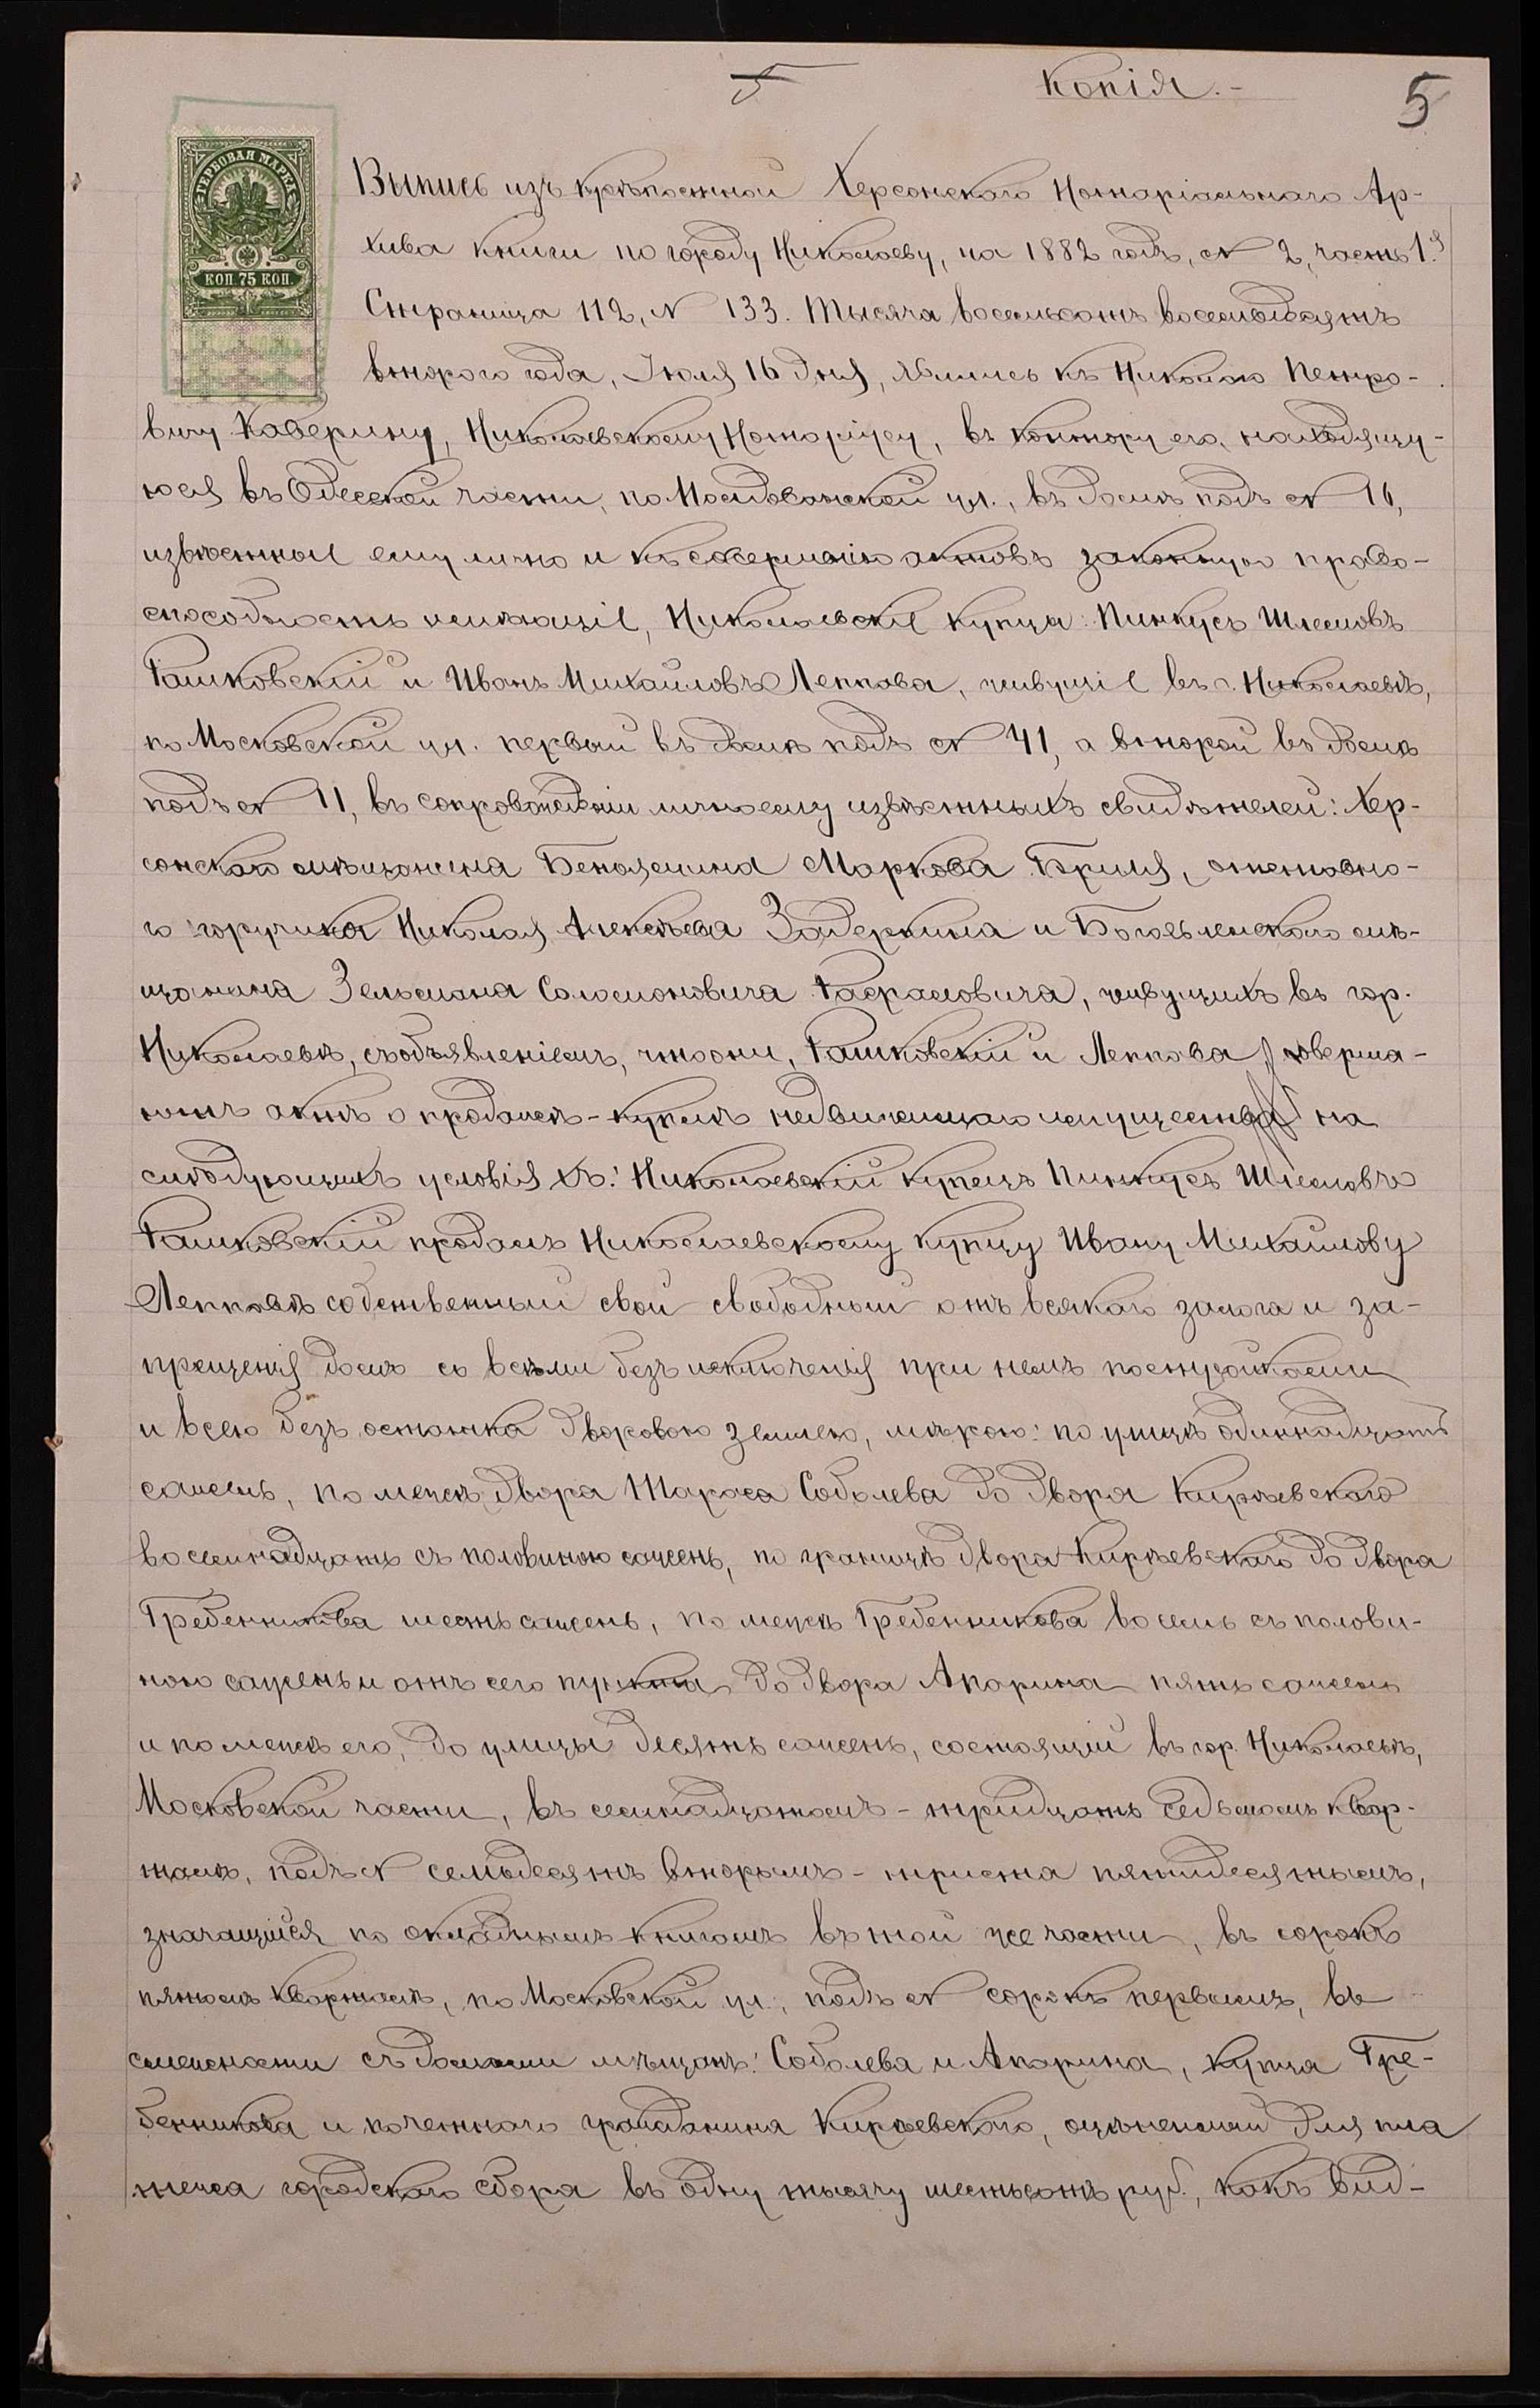 5
Копія.-
5
ГЕРБОВАЯ МАРКА
КОП. 75 КОП.
Выпись изъ крѣпостной Херсонскаго Нотаріальнаго Ар-
хива книги по городу Николаеву, на 1882 годъ, № 2, часть 1.я
Страница 112, № 133. Тысяча восемьсотъ восемьдесятъ
втораго года, Іюля 16 дня, явились къ Николаю Петро-
вичу Каверину, Николаевскому Нотаріусу, въ контору его, находящу-
юся въ Одесской части, по Молдованской ул., въ домѣ подъ №
извѣстные ему лично и къ совершенію актовъ законную право-
способность имѣющіе, Николаевскіе купцы: Пинкусъ Шлемовъ
Рашковскій и Иванъ Михайловъ Леппова, живущіе въ г. Николаевѣ,
по Московской ул. первый въ домѣ подъ № 41, а второй въ домѣ
подъ № 11, въ сопровожденіи лично ему извѣстныхъ свидѣтелей: Хер-
сонскаго мѣщанина Беньямина Маркова Бриля, отставно-
го поручика Николая Алексѣева Задеркина и Богоявленскаго мѣ-
щанина Зельмана Соломоновича живущихъ въ гор.
Николаевѣ, съ объявленіемъ, что они, Рашковскій и Леппова, соверша-
ютъ актъ о продажѣ-купли недвижимаго имущества на
слѣдующихъ условіяхъ: Николаевскій купецъ Пинкусъ Шлемовъ
Рашковскій продалъ Николаевскому купцу Ивану Михайлову
Лепповѣ собственный свой свободный отъ всякаго залога и за-
прещенія домъ со всѣми безъ исключенія при немъ постройками
и всею безъ остатка дворовою землею, мѣрою: по улицѣ одиннадцать
сажень, по межѣ двора Тараса Соболева до двора Кирѣевскаго
восемнадцать съ половиною сажень, по границѣ двора Кирѣевскаго до двора
Гребенникова шесть сажень, по межѣ Гребенникова восемь съ полови-
ною сажень и отъ сего пункта до двора Апарина пять сажень
и по межѣ его, до улицы десять сажень, состоящій въ гор. Николаевѣ,
Московской части, въ семнадцатомъ - тридцать седьмомъ квар-
талѣ, подъ № семьдесятъ вторымъ - триста пятидесятымъ,
значащійся по окладнымъ книгамъ въ той же части, въ сорокъ
пятомъ кварталѣ, по Московской ул., подъ № сорокъ первымъ, въ
смежности съ домами мѣщанъ: Соболева и Апарина, купца Гре-
бенникова и почетнаго гражданина Кирѣевскаго, оцѣненный для пла
тежа городскаго сбора въ одну тысячу шестьсотъ руб., какъ вид-